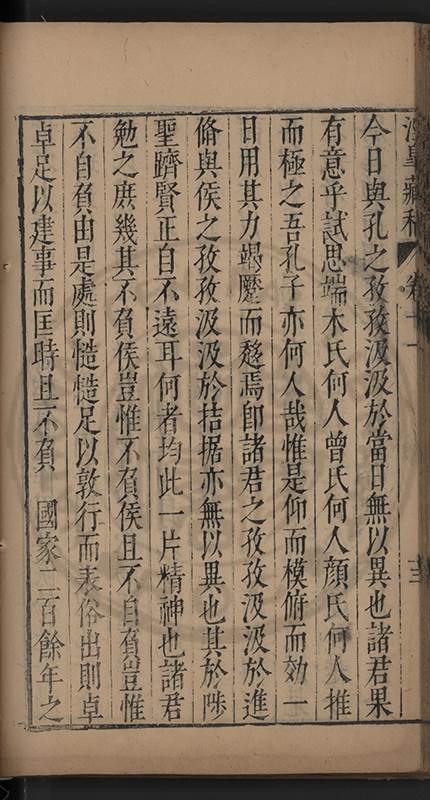 藏稿 卷十一 十三
今日與孔之孜孜汲汲於當日無以異也諸君果
有意乎試思端木氏何人曾氏何人顏氏何人推
而極之吾孔子亦何人哉惟是仰而模俯而効一
日用其力竭蹷而趍焉卽諸君之孜孜汲汲於進
脩與侯之孜孜汲汲於拮据亦無以異也其於陟
聖躋賢正自不遠耳何者均此一片精神也諸君
勉之庶幾其不負侯豈惟不負侯且不自負豈惟
不自負由是處則慥慥足以敦行而表俗出則卓
卓足以建事而匡時且不負 國家二百餘年之